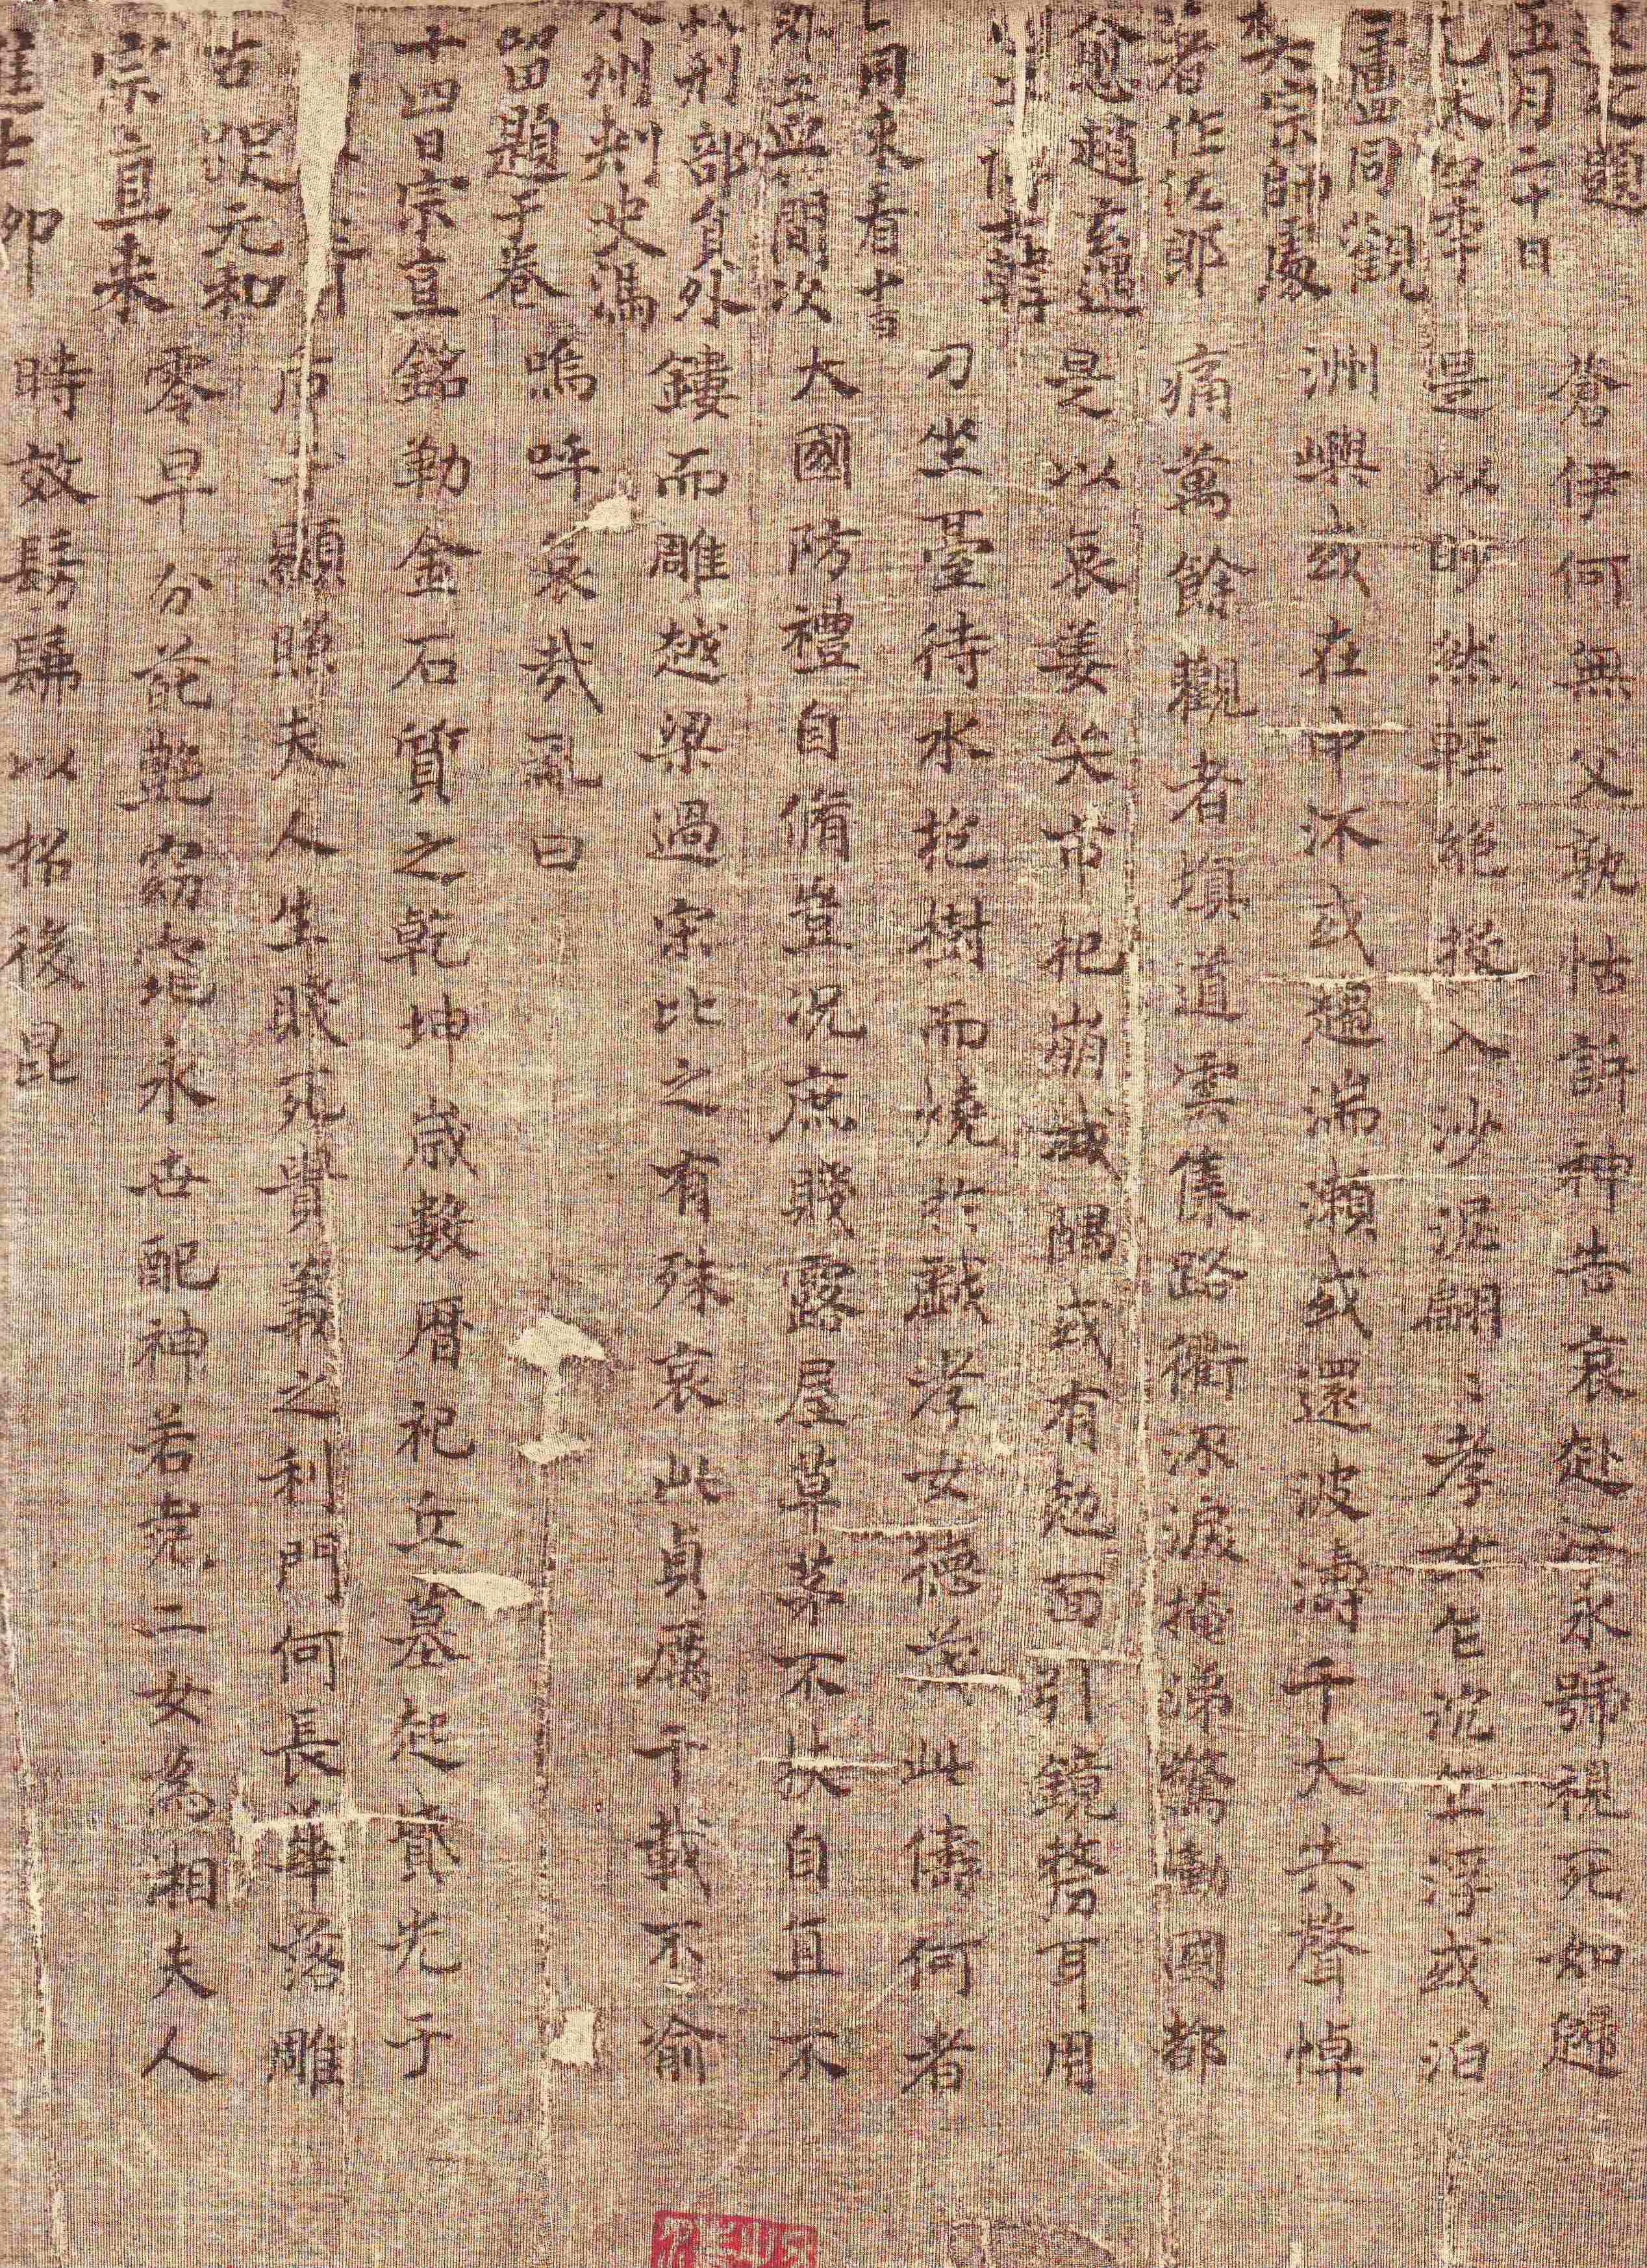 題
五月二十日
四年
盧同觀
宗師處
著作佐郎
愈趙玄遇
韓
同来看
孟簡次
刑部員外
州刺史馮
留題于卷
十四日宗直
元和
宗直来
蒼伊何無父孰怙訴神告哀赴江永號視死如歸
是以眇然輕絕投入沙泥翩〻孝女乍沉乍浮或泊
洲嶼或在中流或趨湍瀨或還波濤千夫失聲悼
痛萬餘觀者填道雲集路衢流淚掩涕驚慟國都
是以哀姜哭市杞崩城隅或有尅面引鏡剺耳用
刀坐臺待水抱樹而燒於戲孝女德茂此儔何者
大國防禮自脩豈況庶賤露屋草茅不扶自直不
鏤而雕越梁過宋比之有殊哀此貞厲千載不渝
嗚呼哀哉亂曰
銘勒金石質之乾坤歲數曆祀丘墓起墳光于
后土顯照夫人生賤死貴義之利門何長華落雕
零早分葩艷窈窕永世配神若堯二女為湘夫人
時效髣髴以招後昆